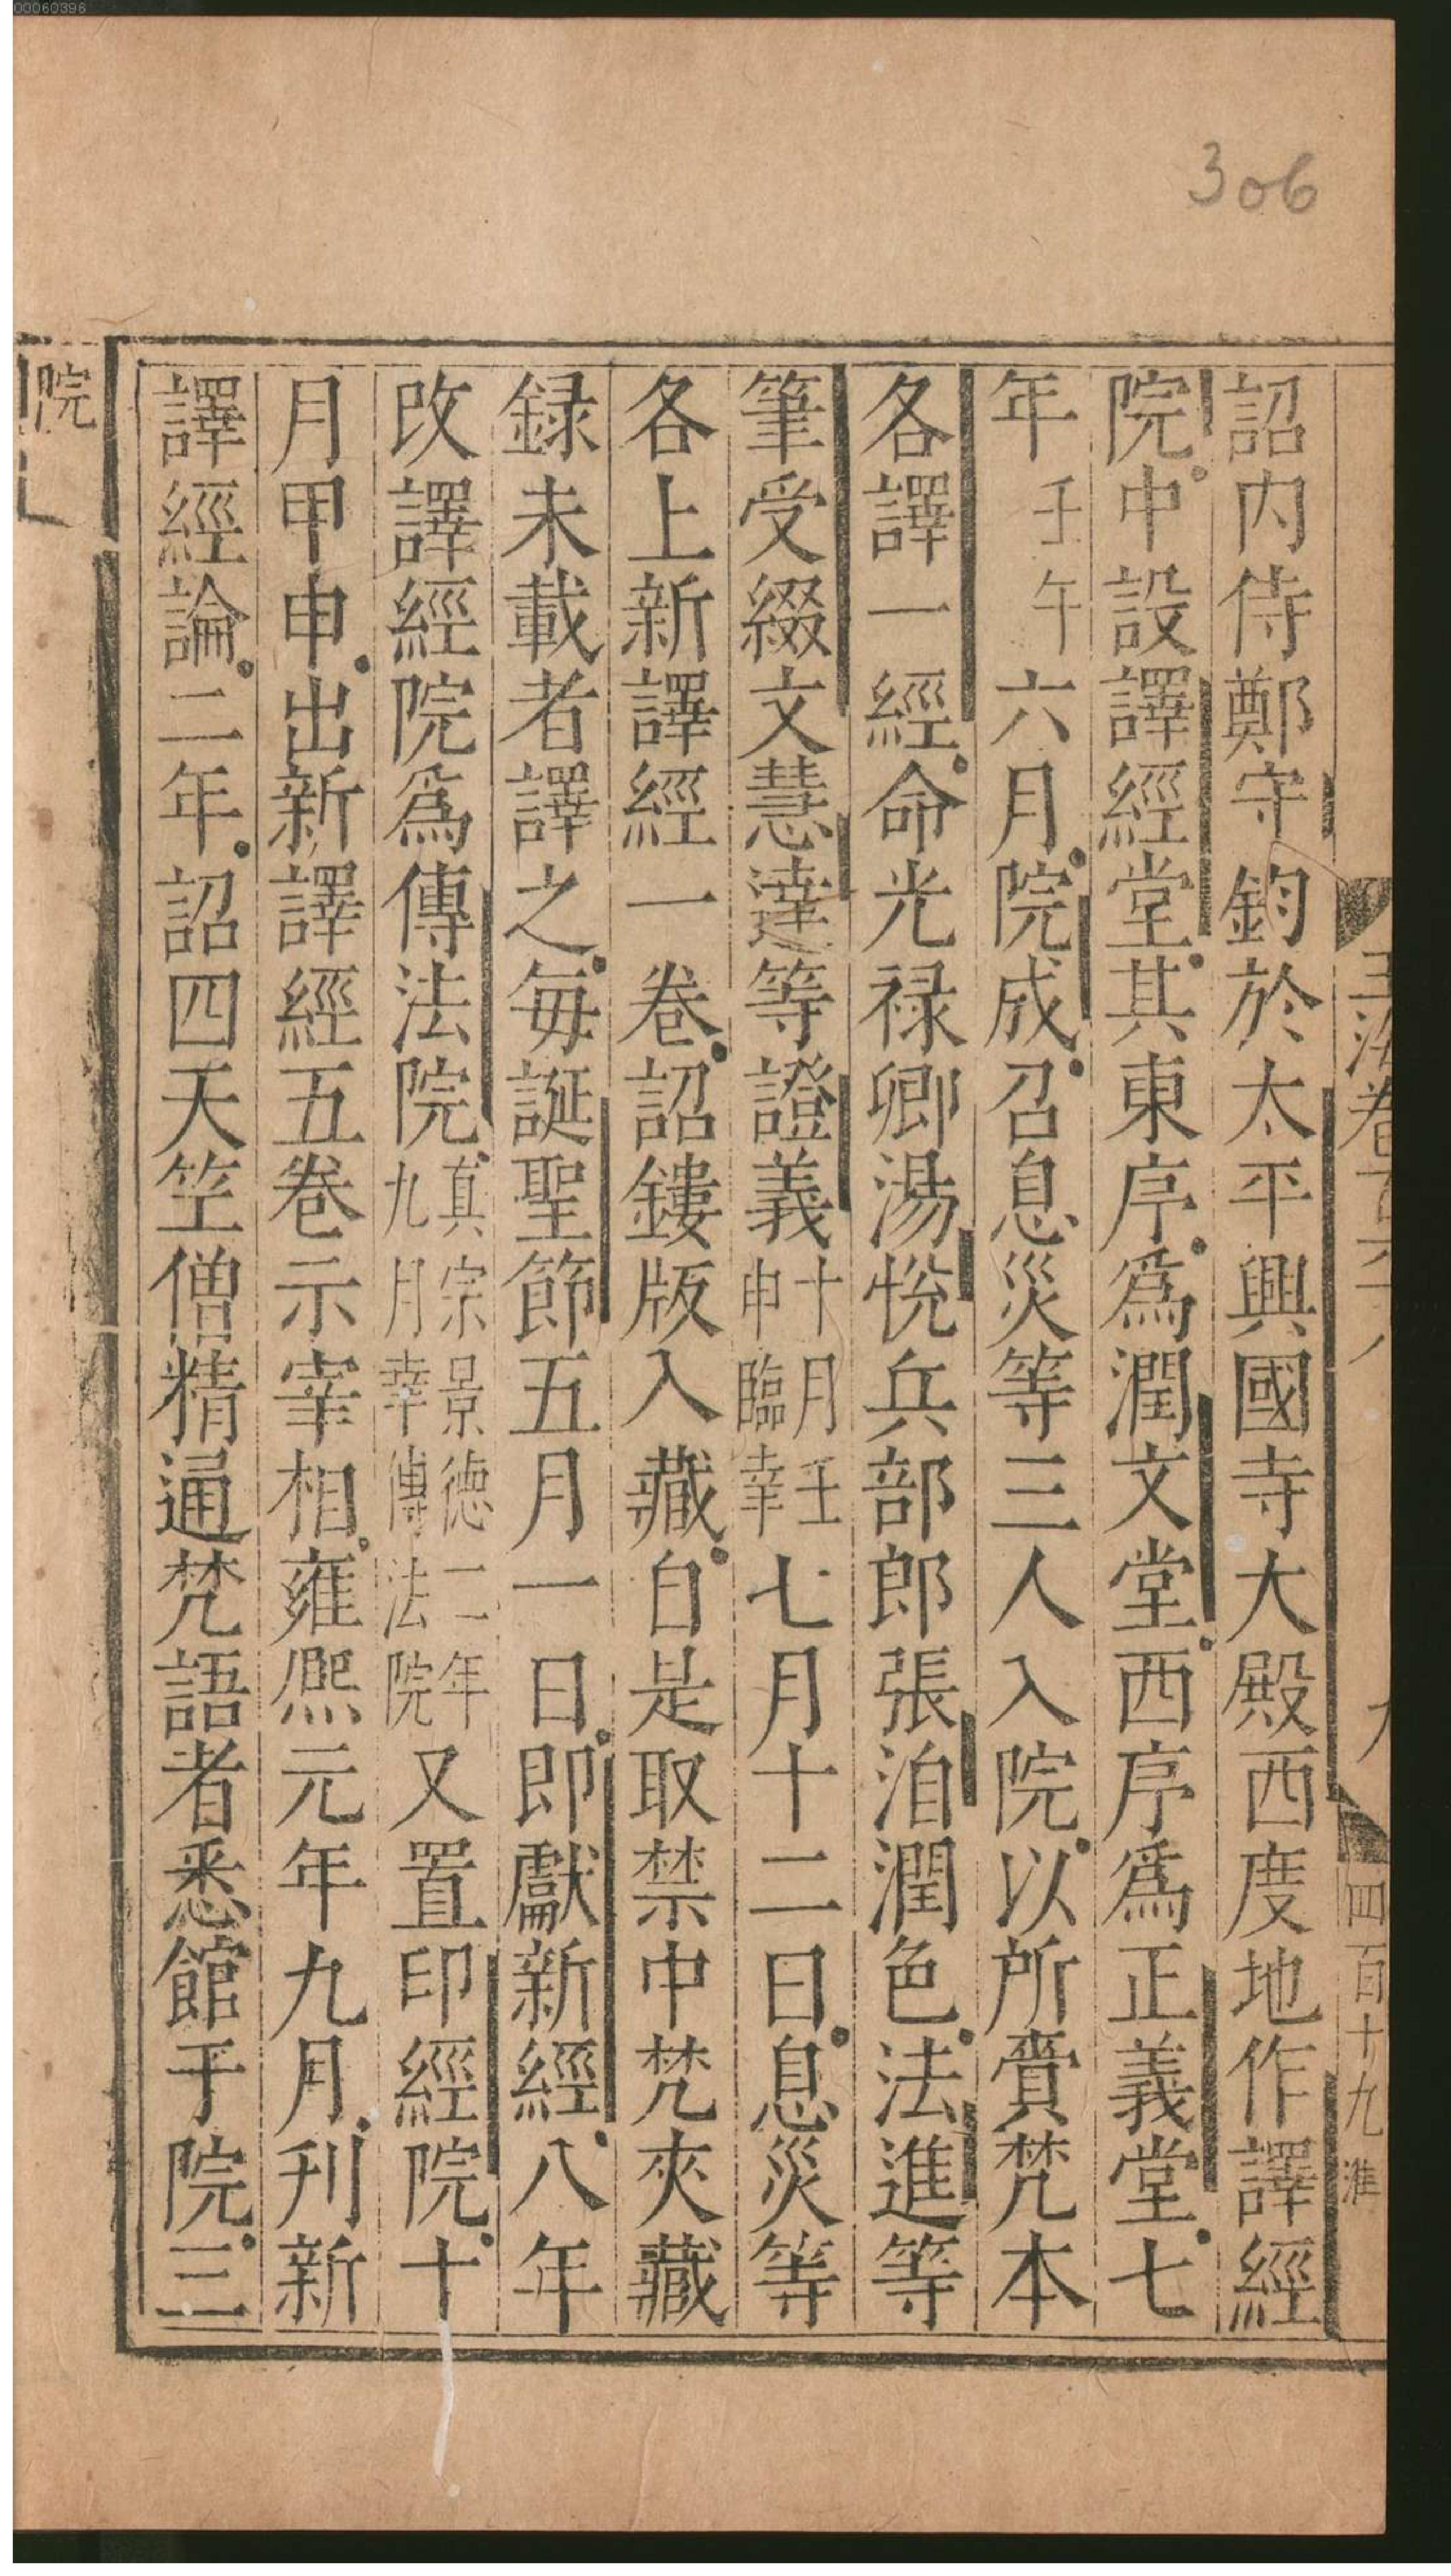 00060396
306
詔内侍鄭守鈞於太平興國寺大殿西度地作譯經
院中設譯經堂其東序爲潤文堂西序爲正義堂七
年壬午六月院成召息災等三人入院以所賫梵本
各譯一經命光禄卿湯恱兵部郎張洎潤色法進等
筆受綴文慧達等證義十月壬申臨幸七月十二日息災等
各上新譯經一卷詔鏤版入藏自是取禁中梵夾藏
録未載者譯之每誕聖節五月一日即獻新經八年
改譯經院爲傳法院真宗景徳二年九月幸傳法院又置印經院十
月甲申出新譯經五卷示宰相雍熈元年九月刋新
譯經論二年詔四天竺僧精通梵語者悉館于院三
玉海卷百六十八
九
四百十九
淮
院